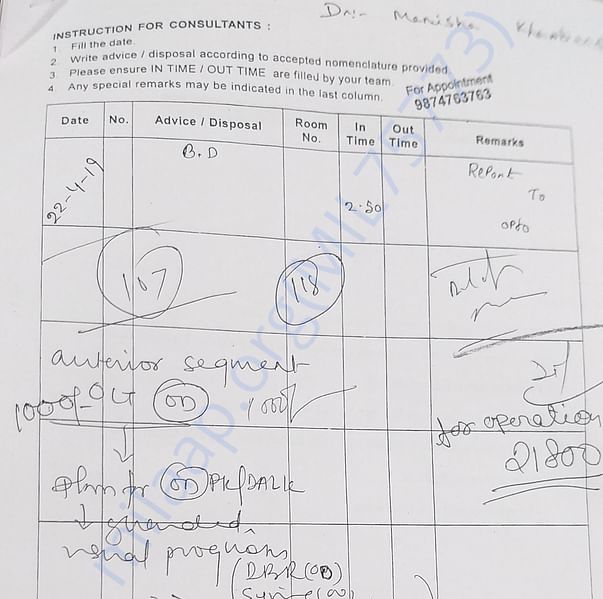 Dr:- Manisha
INSTRUCTION FOR CONSULTANTS :
1. Fill the date.
2. Write advice / disposal according to accepted nomenclature provided.
3. Please ensure IN TIME / OUT TIME are filled by your team.
4. Any special remarks may be indicated in the last column.
For Appointment
9874763763
Date No. Advice / Disposal Room No. In Time Out Time Remarks
22-4-19 B.D 2.50 Report
To
opto
107 118
anterior segment
OCT OD 1000/-
for operation
21800
Plan for OD PK/DALK
↓ guarded
visual prognosis
(DBR(OD)
milaap.org(MIL75773)